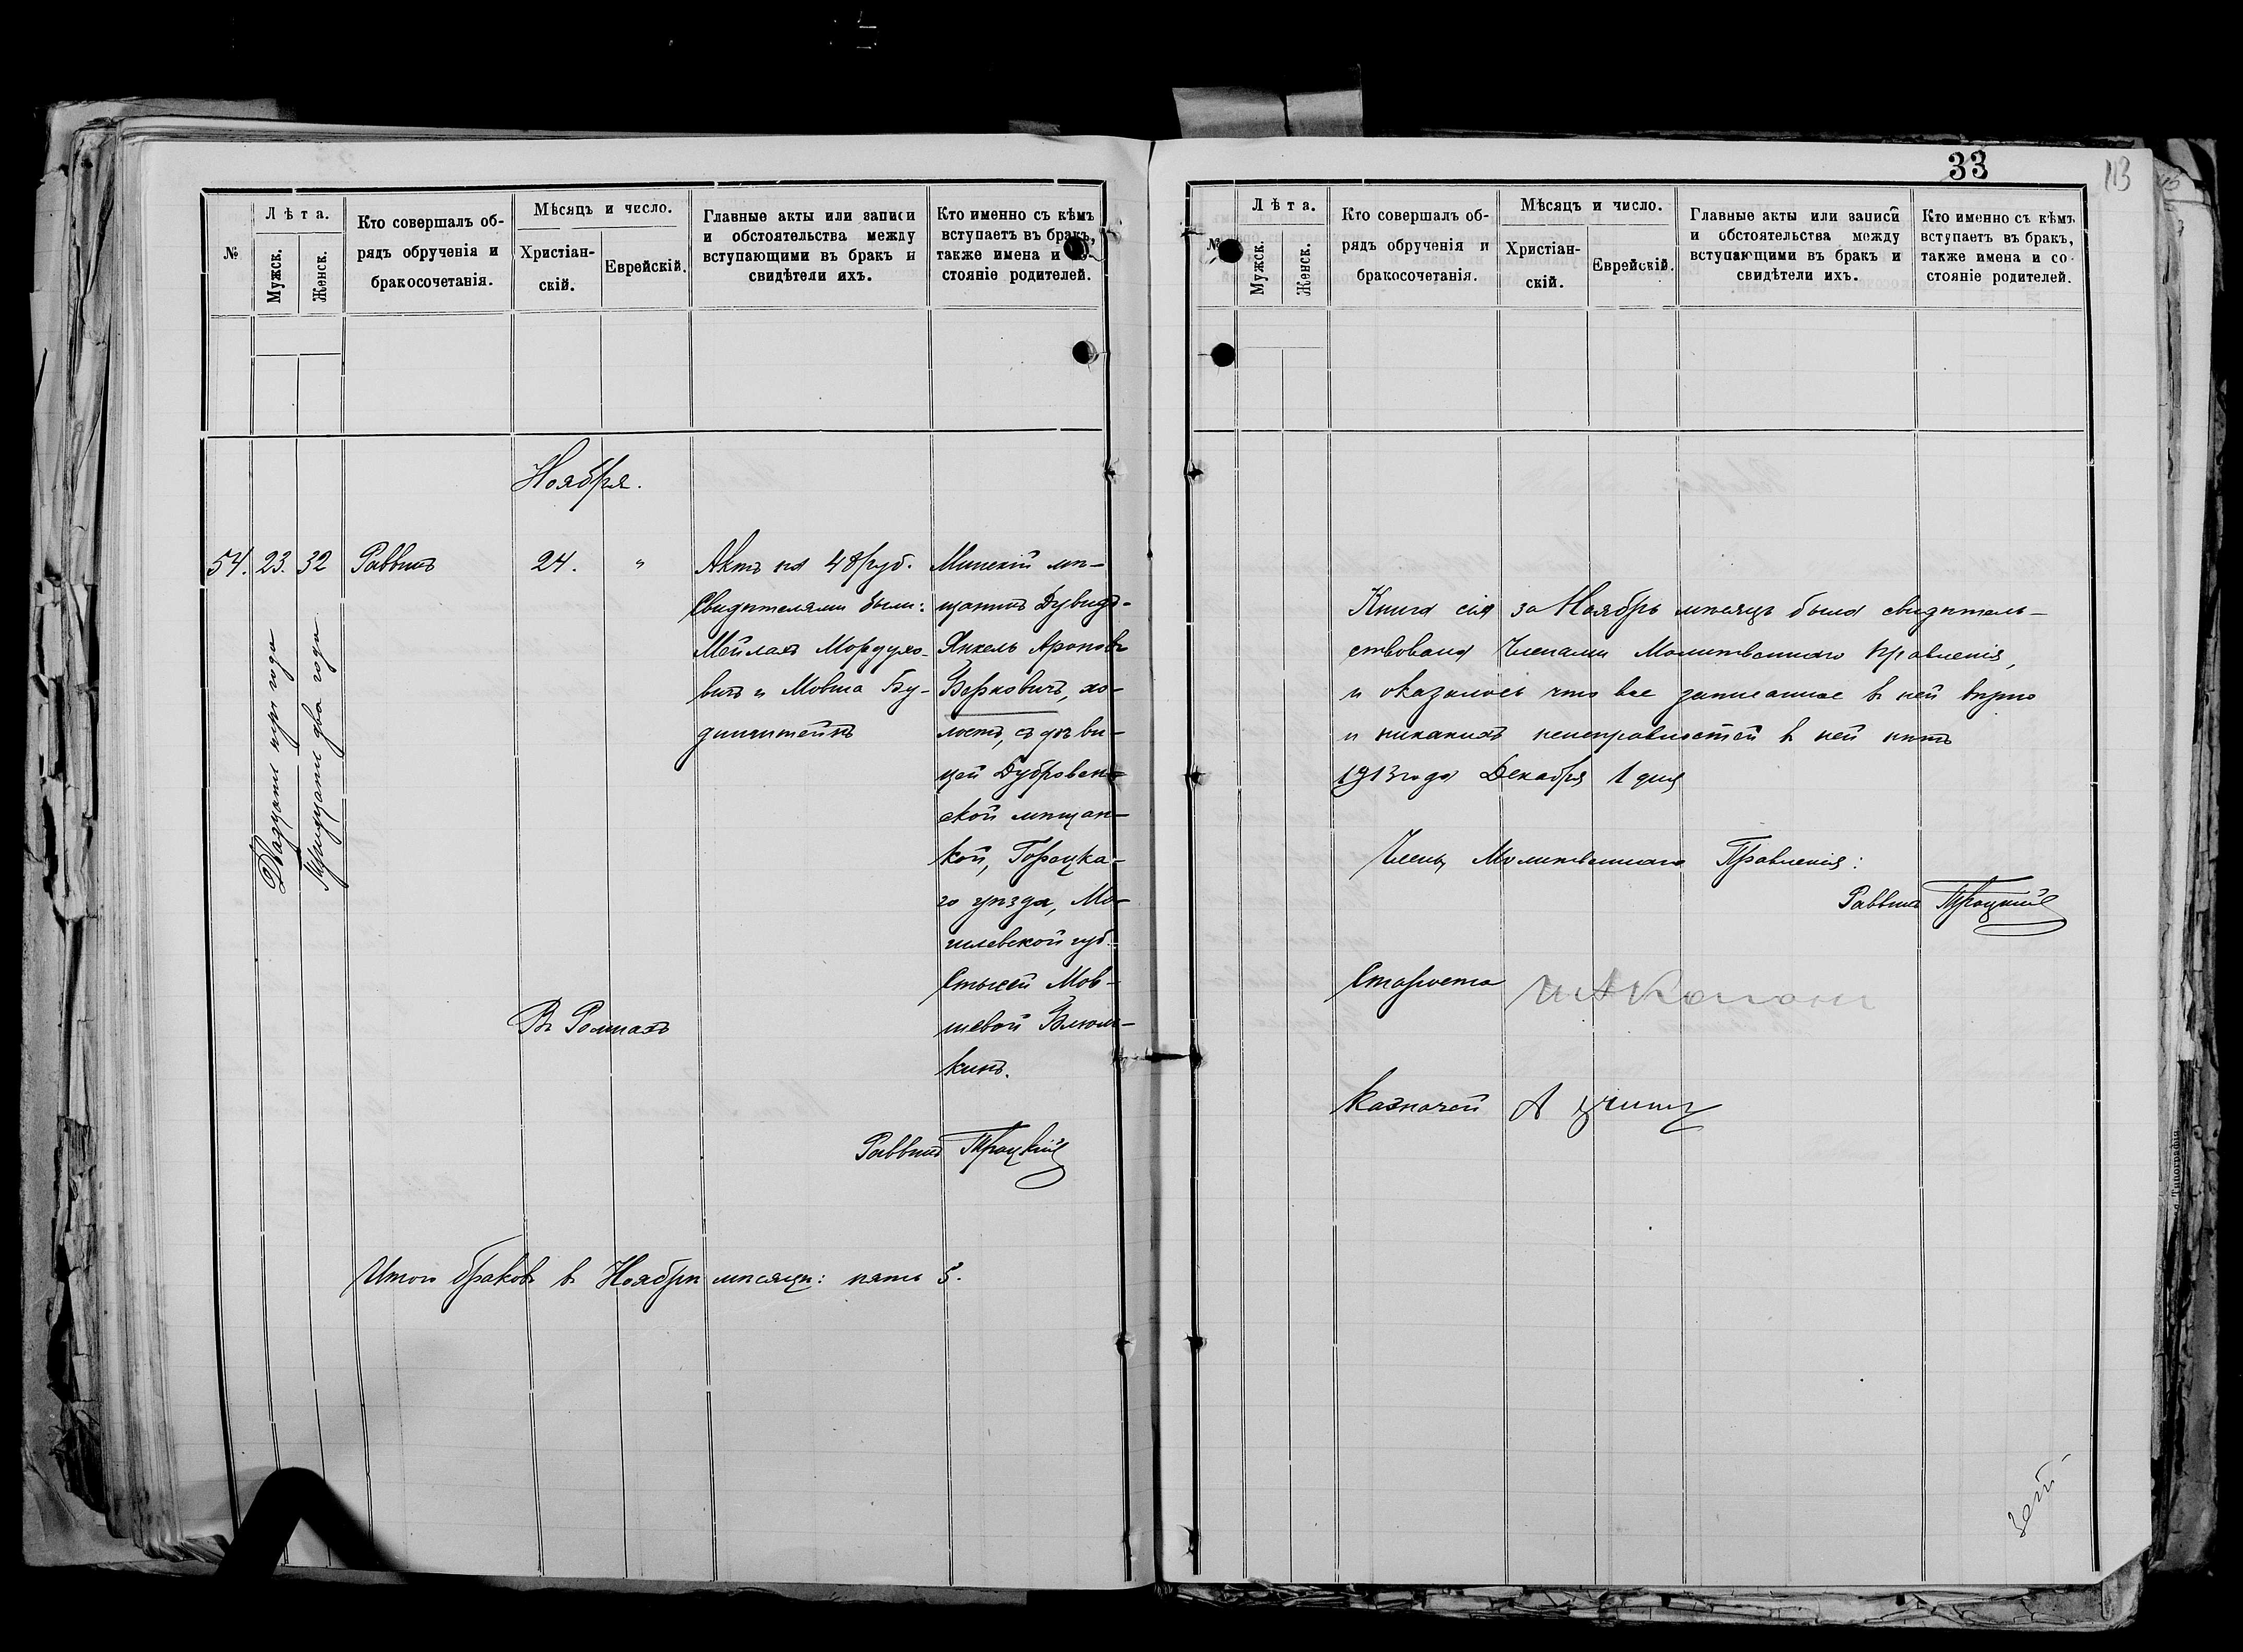 №
Лѣта.
Мужск.
Женск.
Кто совершалъ об-
рядъ обрученія и
бракосочетанія.
Мѣсяцъ и число.
Христіан-
скій.
Еврейскій.
Главные акты или записи
и обстоятельства между
вступающими въ бракъ и
свидѣтели ихъ.
Кто именно съ кѣмъ
вступаетъ въ бракъ,
также имена и
стояніе родителей.
Ноября.
54. 23. 32 Раввинъ 24. "
Двадцати три года
Тридцати два года
Актъ на 48 руб.
Свидѣтелями были:
Мейлахъ Мордухо-
вичъ и Мовша Бу-
динштейнъ
Минскій мѣ-
щанинъ Дувидъ-
Янкель Ароновъ
Берковичъ, хо-
лостъ, съ дѣви-
цей Дубровен-
ской мѣщан-
кой, Горецка-
го уѣзда, Мо-
гилевской губ.
Стысей Мов-
шевой Блюм-
кинъ.
Въ Ромнахъ
Раввинъ Троцкій
Итого браковъ въ Ноябрѣ мѣсяцѣ: пять 5.
33
113
№
Лѣта.
Мужск.
Женск.
Кто совершалъ об-
рядъ обрученія и
бракосочетанія.
Мѣсяцъ и число.
Христіан-
скій.
Еврейскій.
Главные акты или записи
и обстоятельства между
вступающими въ бракъ и
свидѣтели ихъ.
Кто именно съ кѣмъ
вступаетъ въ бракъ,
также имена и со
стояніе родителей.
Книга сія за Ноябрь мѣсяцъ была свидѣтель-
ствована Членами Молитвеннаго Правленія,
и оказалось что все записанное въ ней вѣрно
и никакихъ неисправностей въ ней нѣтъ
1913 года Декабря 1 дня
Члены Молитвеннаго Правленія:
Раввинъ Троцкій
Староста
Казначей А
Типографія